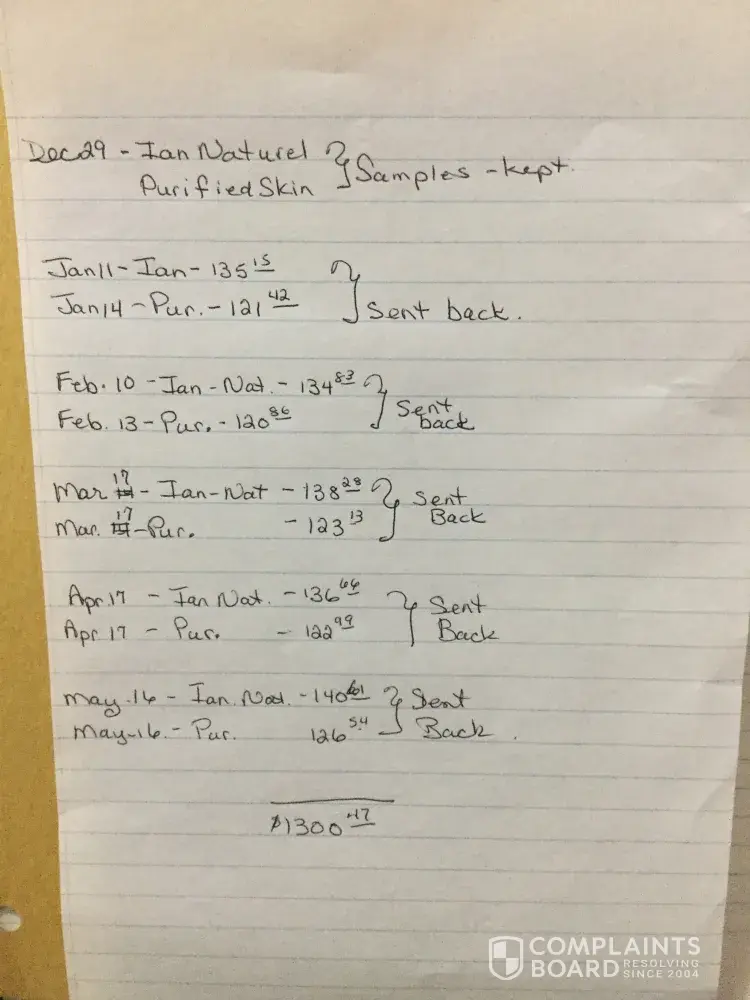 Dec 29 - Ian Naturel
Purified Skin
Samples - kept.
Jan 11 - Ian - 135 15
Jan 14 - Pur. - 121 42
Sent back.
Feb. 10 - Ian - Nat. - 134 83
Feb. 13 - Pur. - 120 86
Sent
back
Mar 17 - Ian - Nat - 138 28
Mar. 17 - Pur. - 123 13
Sent
Back
Apr. 17 - Ian Nat. - 136 66
Apr 17 - Pur. - 122 99
Sent
Back
May. 16 - Ian. Nat. - 140 61
May. 16. - Pur. 126 54
Sent
Back.
$1300 47
COMPLAINTS
BOARD RESOLVING SINCE 2004